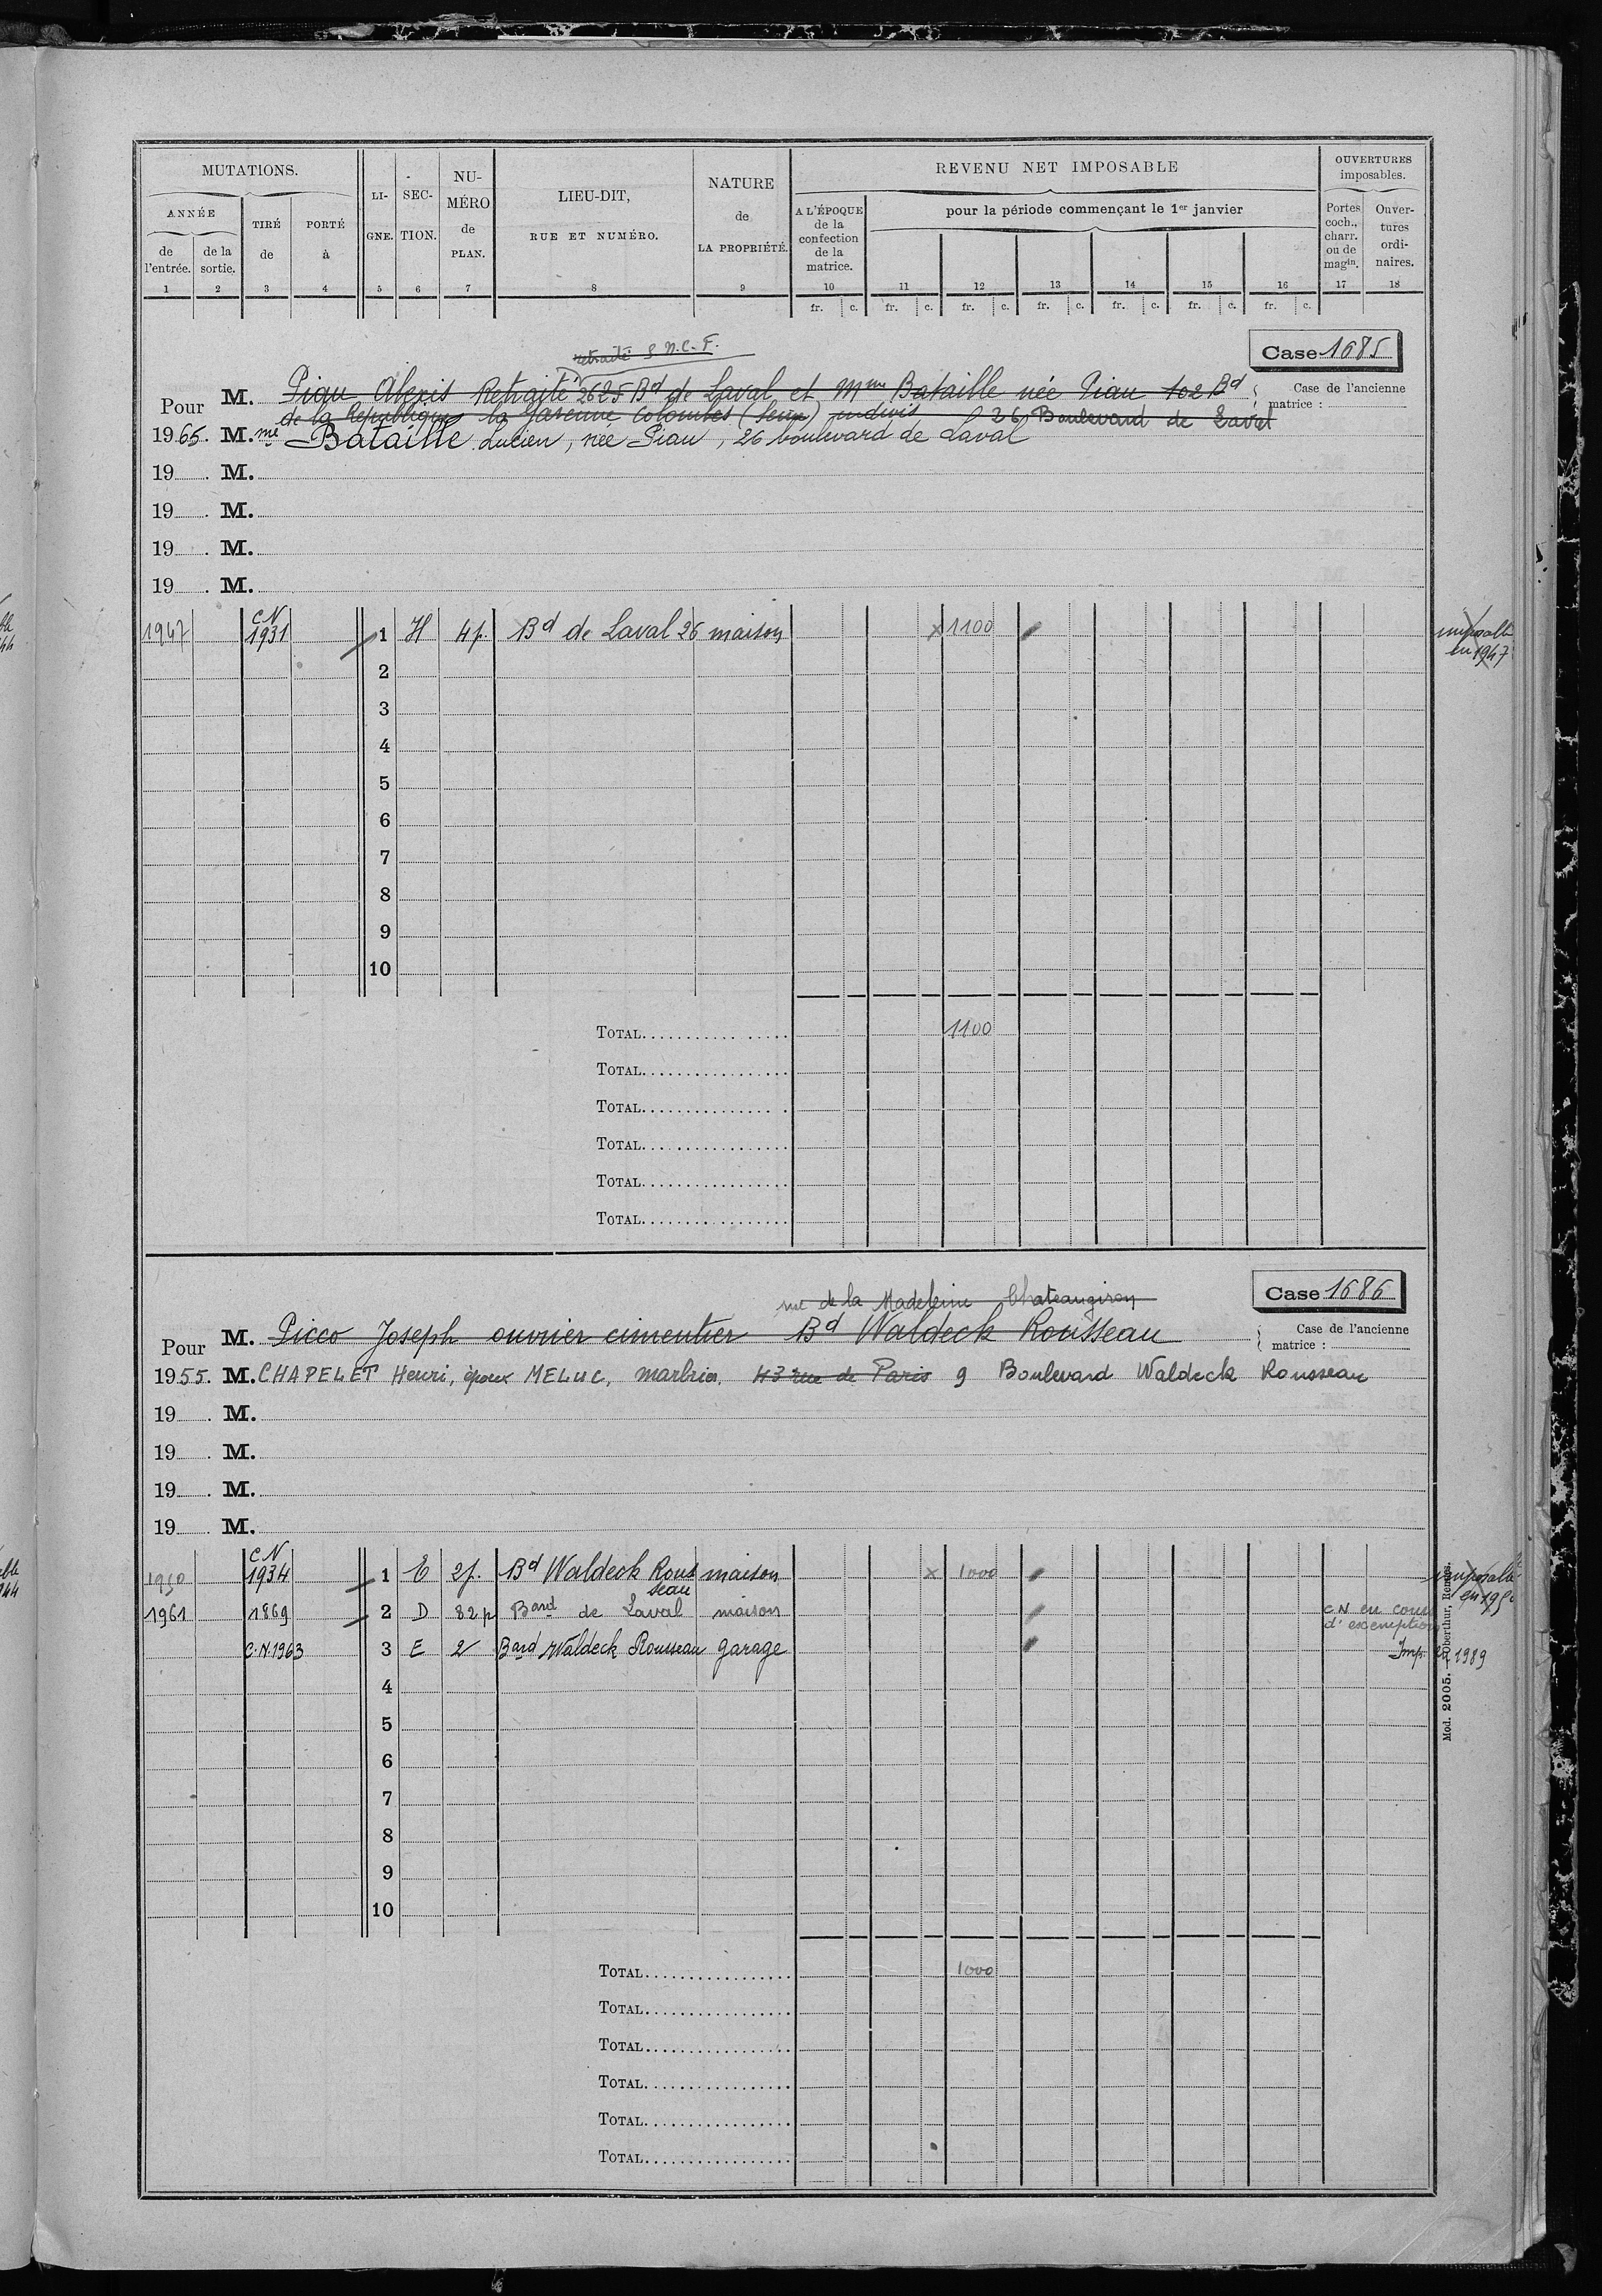 MUTATIONS.
ANNÉE
de l'entrée.
de la sortie.
TIRÉ de
PORTÉ à
LI-GNE.
SEC-TION.
NU-MÉRO de PLAN.
LIEU-DIT, RUE ET NUMÉRO.
NATURE de LA PROPRIÉTÉ.
REVENU NET IMPOSABLE
A L'ÉPOQUE de la confection de la matrice.
pour la période commençant le 1er janvier
OUVERTURES imposables.
Portes coch., charr. ou de magin.
Ouver-tures ordi-naires.
1 2 3 4 5 6 7 8 9 10 11 12 13 14 15 16 17 18
fr. c. fr. c. fr. c. fr. c. fr. c. fr. c. fr. c.
retraité S.N.C.F.
Case 1685
Case de l'ancienne matrice :
Pour M. Piau Alexis Retraité 26 Bd de Laval et Mme Bataille née Piau 102 Bd
de la République la Garenne Colombes (Seine) indivis 26 Boulevard de Laval
1965. M.me Bataille Lucien, née Piau, 26 boulevard de Laval
19 . M.
19 . M.
19 . M.
19 . M.
1947 CN 1931 1 H 4p. Bd de Laval 26 maison x 1100 imposable en 1947
2
3
4
5
6
7
8
9
10
TOTAL 1100
TOTAL
TOTAL
TOTAL
TOTAL
TOTAL
rue de la Madeleine Chateaugiron
Case 1686
Case de l'ancienne matrice :
Pour M. Picco Joseph ouvrier cimentier Bd Waldeck Rousseau
1955. M. CHAPELET Henri, époux MELUC, marbrier, 43 rue de Paris 9 Boulevard Waldeck Rousseau
19 . M.
19 . M.
19 . M.
19 . M.
1950 CN 1934 1 E 2p. Bd Waldeck Rousseau maison x 1000 imposable en 1950
1961 1869 2 D 82p Bard de Laval maison C.N en cours d'exemption
C.N.1963 3 E 2 Bard Waldeck Rousseau garage Imp. en 1989
4
5
6
7
8
9
10
TOTAL 1000
TOTAL
TOTAL
TOTAL
TOTAL
TOTAL
Mod. 2005. — Oberthur, Rennes.